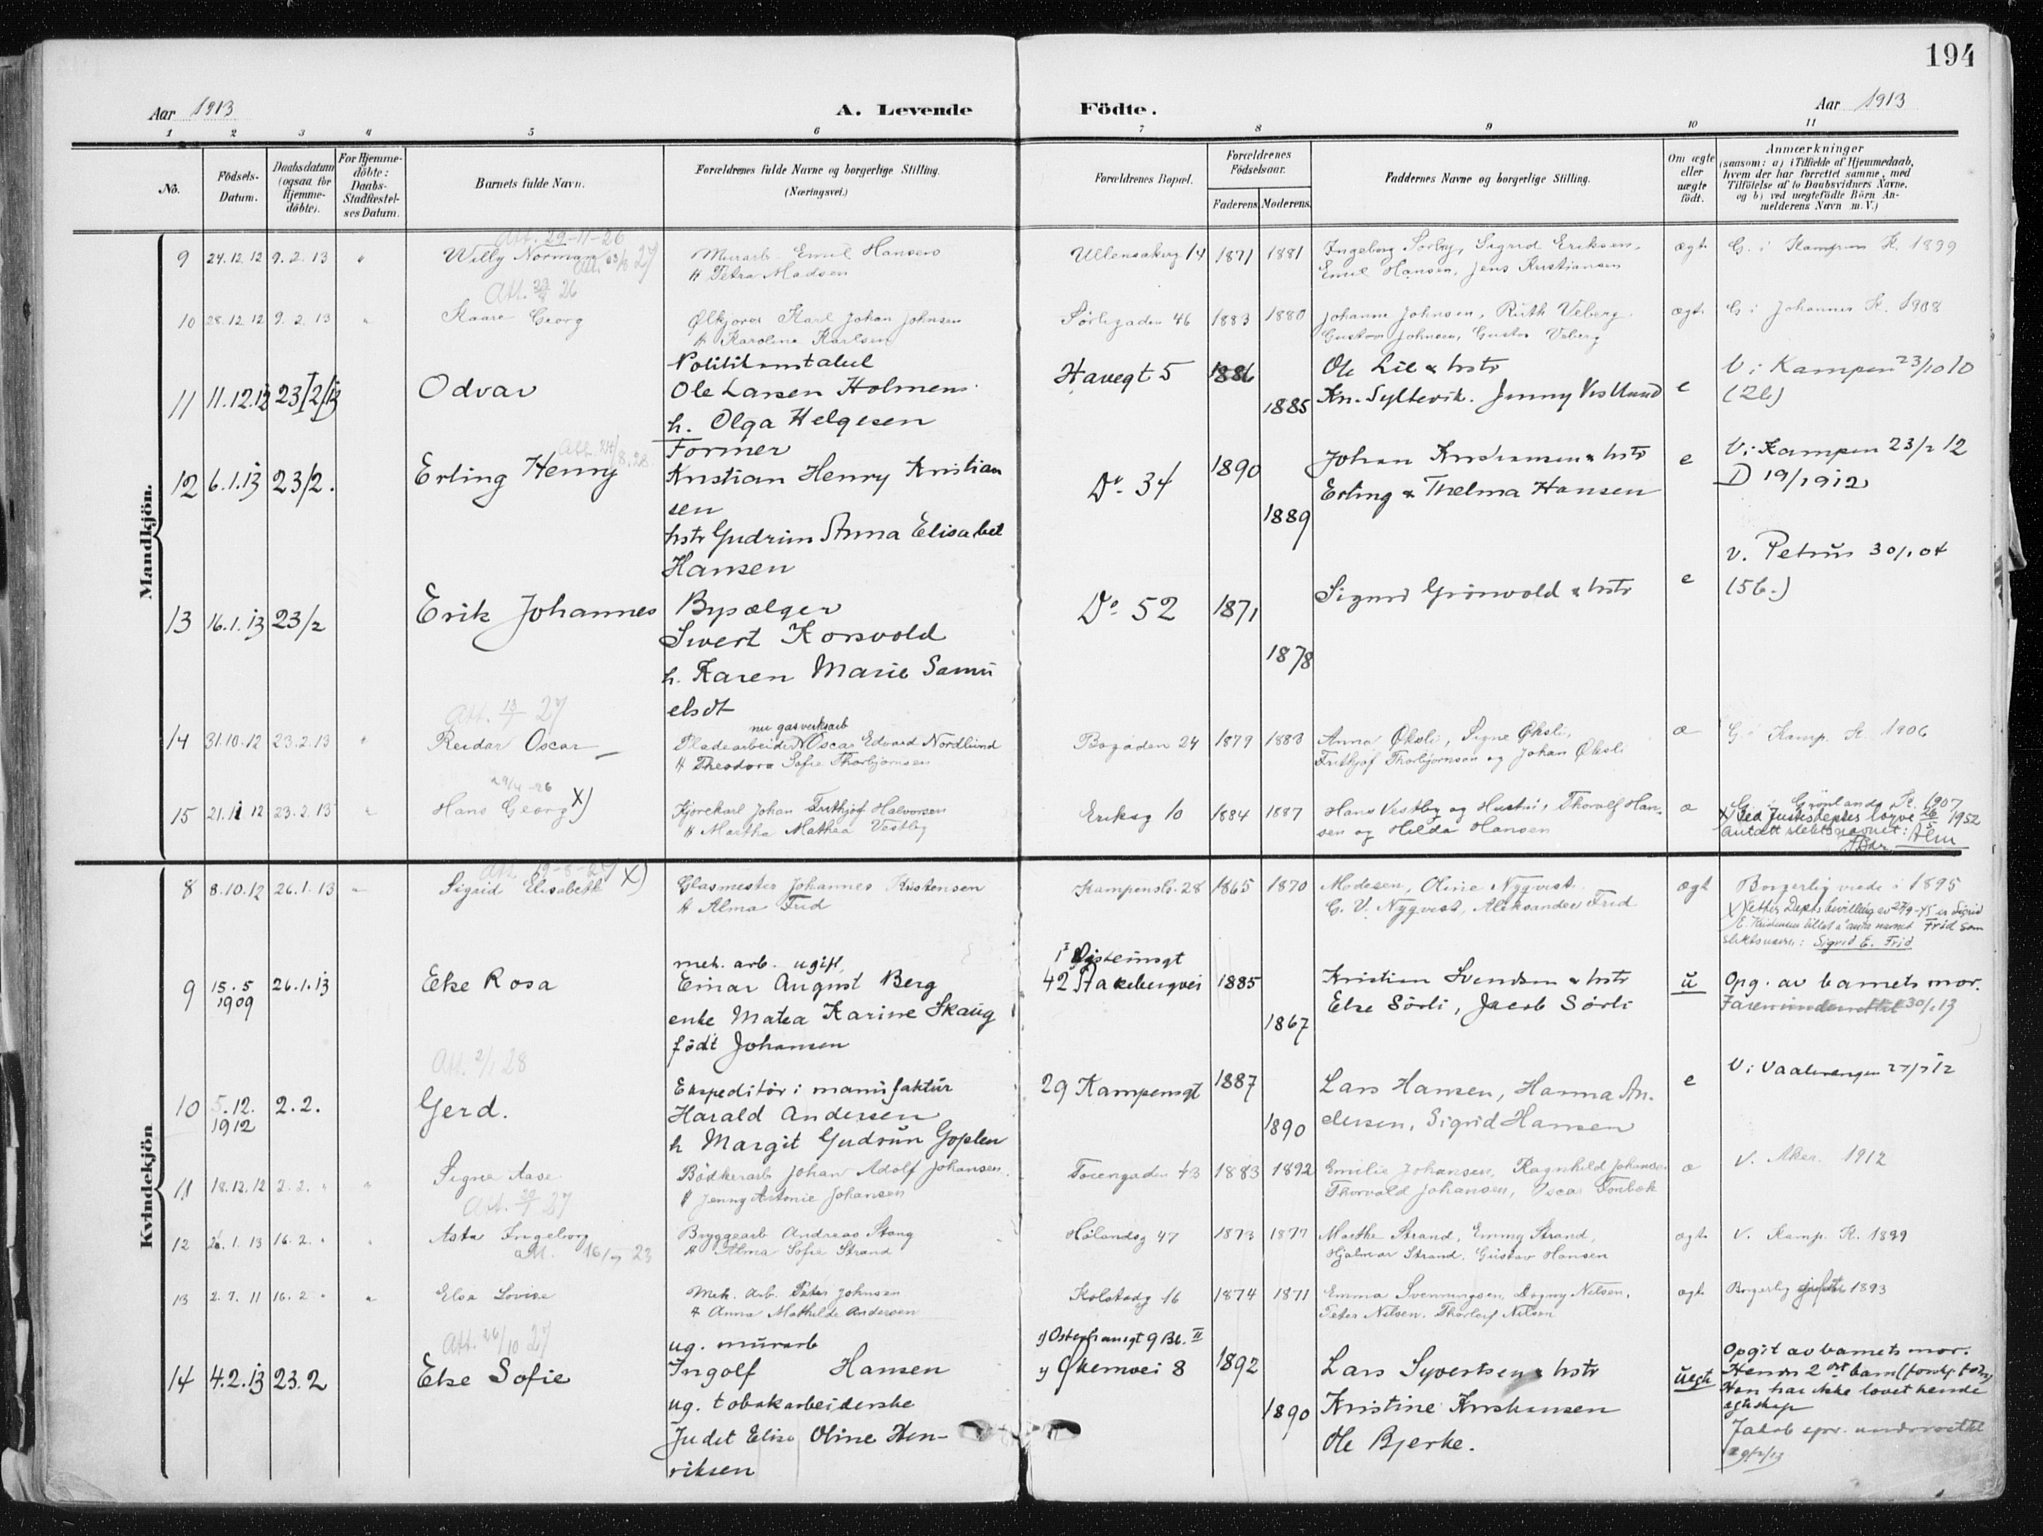 194
Aar 1913 A. Levende Födte. Aar 1913
1 2 3 4 5 6 7 8 9 10 11
No. Födsels-Datum. Daabsdatum (ogsaa for Hjemme-döbte). For Hjemme-döbte: Daabs-Stadfæstel-ses Datum. Barnets fulde Navn. Forældrenes fulde Navne og borgerlige Stilling. (Næringsvei.) Forældrenes Bopæl. Forældrenes Födselsaar. Faderens. Moderens. Faddernes Navne og borgerlige Stilling. Om ægte eller uægte födt. Anmærkninger (saasom: a) i Tilfælde af Hjemmedaab, hvem der har forrettet samme, med Tilföielse af to Daabsvidners Navne, og b) ved uægtefödte Börn An-melderens Navn m. V.)
Mandkjön.
Att. 29-11-26
9 24.12.12 9.2.13 " Willy Norman Murarb. Emil Hansen Ullensakerg 14 1871 1881 Ingeborg Sørby, Sigrid Eriksen, ægt G. i Kampen K. 1899
H Petra Madsen Emil Hansen, Jens Kristiansen
10 28.12.12 9.2.13 " Kaare Georg Ølkjører Karl Johan Johnsen Sørligaden 46 1883 1880 Johanne Johnsen, Ruth Veberg ægt G. i Johannes K. 1908
H Karoline Karlsen Gustav Johnsen, Gustav Veberg
Politikonstabel
11 11.12.12 23/2/13 Odvar Ole Larsen Holmens Havegt 5 1886 Ole Lie & hstr e V. i Kampen 23/10 10
h. Olga Helgesen 1885 Kr. Syltevik. Jenny Vestlund (2b)
Former
12 6.1.13 23/2. Erling Henry Kristian Henry Kristian Do. 34 1890 Johan Kristiansen & hstr e V. i Kampen 23/2 12
sen Erling & Thelma Hansen D 19/1 912
hstr Gudrun Anna Elisabet 1889
Hansen
Bysælger
13 16.1.13 23/2 Erik Johannes Sivert Korsvold Do 52 1871 Sigurd Grönvold & hstr e v. Petrus 30/1 04
h. Karen Marie Samu 1878 (5b.)
elsdt
Att. 13/7 27
nu gasverksarb
14 31.10.12 23.2.13 " Reidar Oscar Pladearbeider Oscar Edvard Nordlund Bogaden 24 1879 1883 Anna Øksli, Signe Øksli, æ G. i Kamp. K. 1906
H Theodora Sofie Thorbjørnsen Frithjof Thorbjørnsen og Johan Øksli
29/4-26
15 21.11.12 23.2.13 " Hans Georg X) Kjørekarl Johan Frithjof Halvorsen Eriksg 10 1884 1887 Hans Vestby og Hustru, Thorolf Han- æ G. i Grønlands K. 1907
H Martha Mathea Vestby sen og Hilda Hansen X) Ved Justisdeptes løyve 26/5 1952
antatt slektsnavnet: Alm
Kvindekjön
8 8.10.12 26.1.13 " Sigrid Elisabeth X) Glasmester Johannes Kristensen Kampensg. 28 1865 1870 Madsen, Oline Nyqvist. ægt Borgerlig viede i 1895
H Alma Frid G. V. Nyqvist, Aleksander Frid X) Etter Depts bevilling av 27/9-45 er Sigrid
E. Kristensen tillatt å anta navnet Frid som
slektsnavn: Sigrid E. Frid
met. arb. ugift,
9 15.5 1909 26.1.13 Else Rosa Einar August Berg 42 Stakebergvei 1885 Kristian Svendsen & hstr u Opg. av barnets mor.
enke Matea Karine Skaug 1867 Else Sörli, Jacob Sörli 30/1 13
födt Johansen
Att. 2/1 28
Ekspeditör i manufaktur
10 5.12. 1912 2.2. Gerd. Harald Andersen 29 Kampensgt 1887 Lars Hansen, Hanna An- e V. i Vaalerengen 27/7 12
h Margit Gudrun Goplen 1890 dersen, Sigrid Hansen
11 18.12.12 2.2. " " Signe Aase Bödkerarb. Johan Adolf Johansen. Toiengaden 43 1883 1892 Emilie Johansen, Ragnhild Johansen æ V. Aker. 1912
H Jenny Antonie Johansen Thorvald Johansen, Oscar Tonbek
12 26.1.13 16.2. " Asta Ingeborg Bryggearb Andreas Stang Hølandsg 47 1873 1877 Marthe Strand, Emmy Strand, ægt V. Kamp. K. 1899
att. 16/5 23 H Alma Sofie Strand Hjalmar Strand. Gustav Hansen
13 2.7.11 16.2 " " Elsa Lovise Mek. Arb. Peter Johnsen Kolstadg 16 1874 1871 Emma Svenningsen, Dagny Nilsen, ægt Borgerlig gift 1893
H Anna Mathilde Andersen Peter Nilsen. Thorleif Nilsen
Att. 26/10 27
ug. murarb
14 4.2.13 23.2 Else Sofie Ingolf Hansen Økernvei 8 1892 Lars Syvertsen & hstr uegt Opgit av barnets mor.
ug. tobakarbeiderske 1890 Kristine Kristiansen Hendes 2det barn
Judit Elise Oline Hen- Ole Bjerke. Han har ikke lovet hende
riksen egteskap